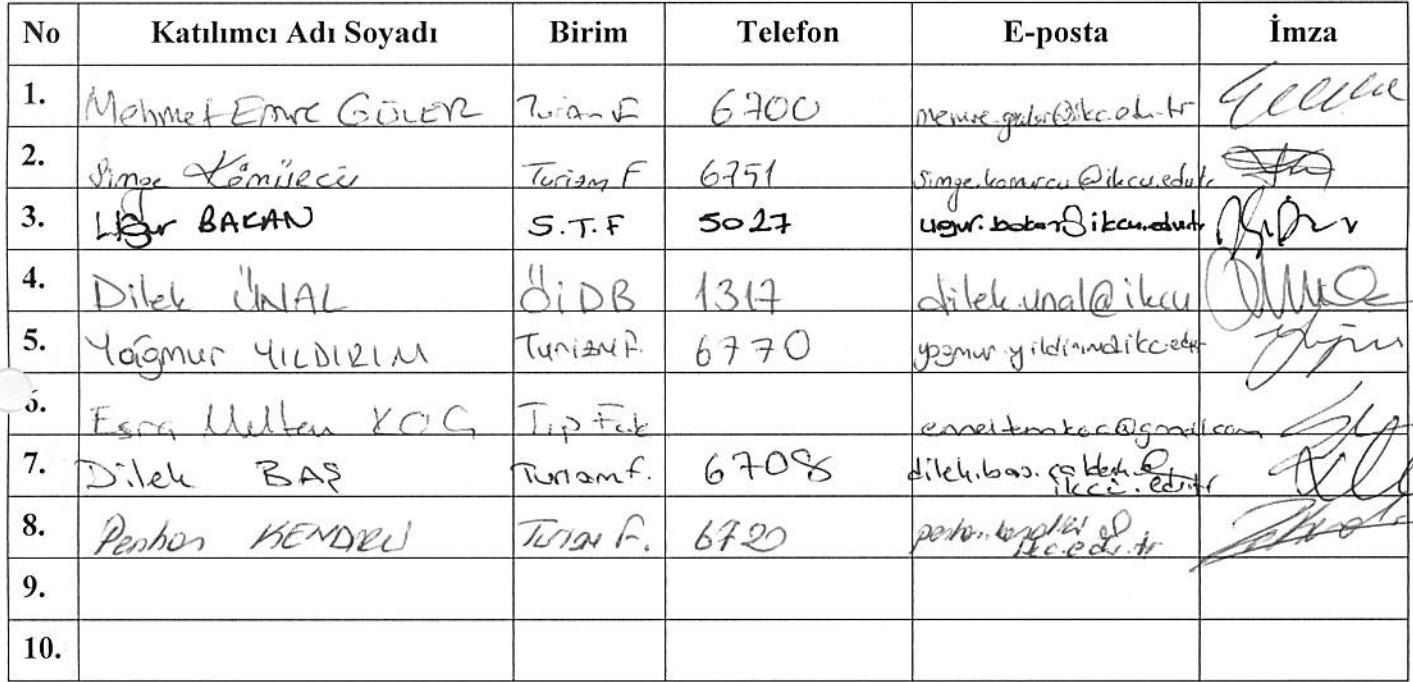 No Katılımcı Adı Soyadı Birim Telefon E-posta İmza
1. Mehmet Emre GÜLER Turizm F 6700
2. Simge Kömürcü Turizm F 6751 simge.komurcu@ikcu.edu.tr
3. Uğur BAKAN S.T.F 5027 ugur.bakan@ikcu.edu.tr
4. Dilek ÜNAL ÖİDB 1317 dilek.unal@ikcu
5. Yağmur YILDIRIM Turizm F. 6770
6. Esra Meltem KOÇ Tıp Fak emeltemkoc@gmail.com
7. Dilek BAŞ Turizm f. 6708 dilek.bas.
8. Perihan Turizm F. 6720
9.
10.